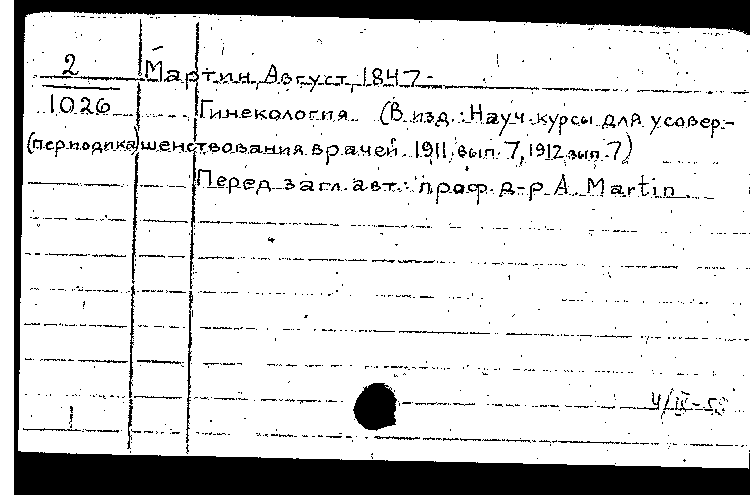 2 Мартин, Август, 1847-
1026 Гинекология. (В изд.: Науч. курсы для усовер-
(периодика) шенствования врачей 1911, вып. 7, 1912 вып. 7)
Перед загл. авт.: проф. д-р A. Martin